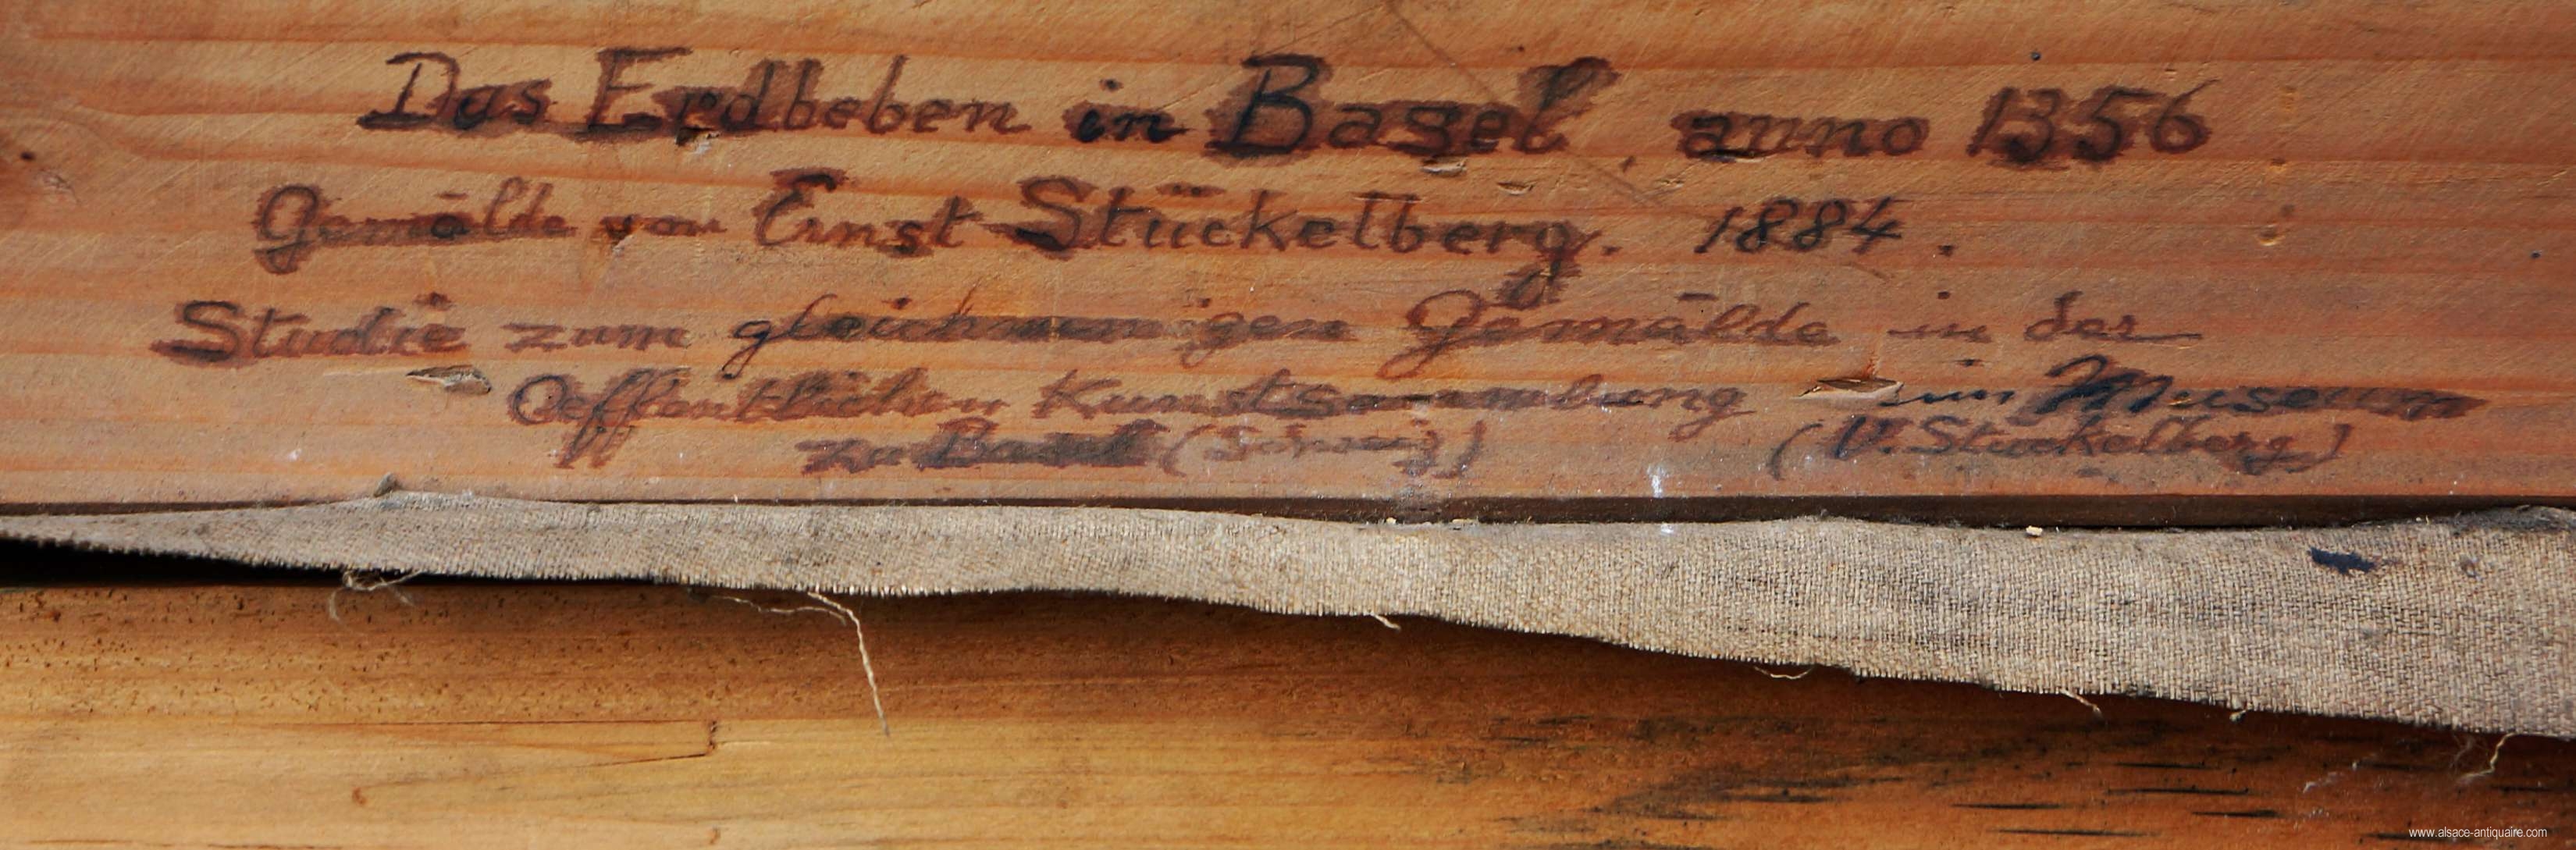 Das Erdbeben in Basel, anno 1356
Gemälde von Ernst Stückelberg. 1884.
Studie zum gleichnamigen Gemälde in der
Oeffentlichen Kunstsammlung im Museum
zu Basel (Schweiz) (V. Stückelberg)
www.alsace-antiquaire.com